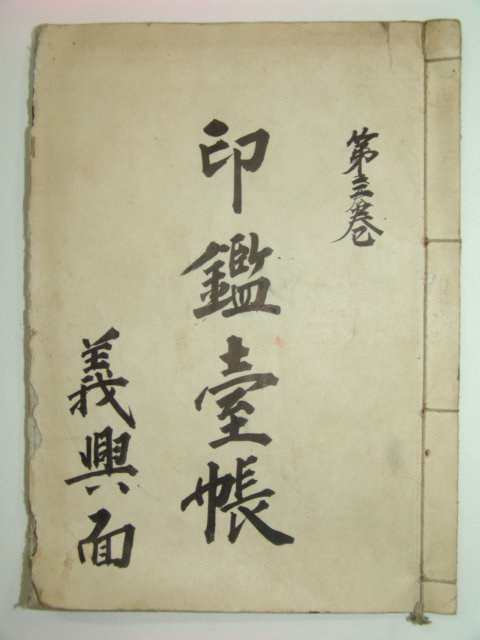 第三卷
印鑑臺帳
義興面